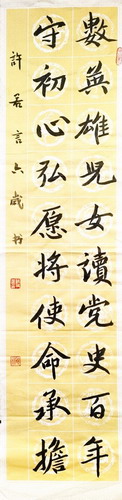 數英雄兒女讀党史百年
守初心弘愿將使命承擔
許若言六歲书